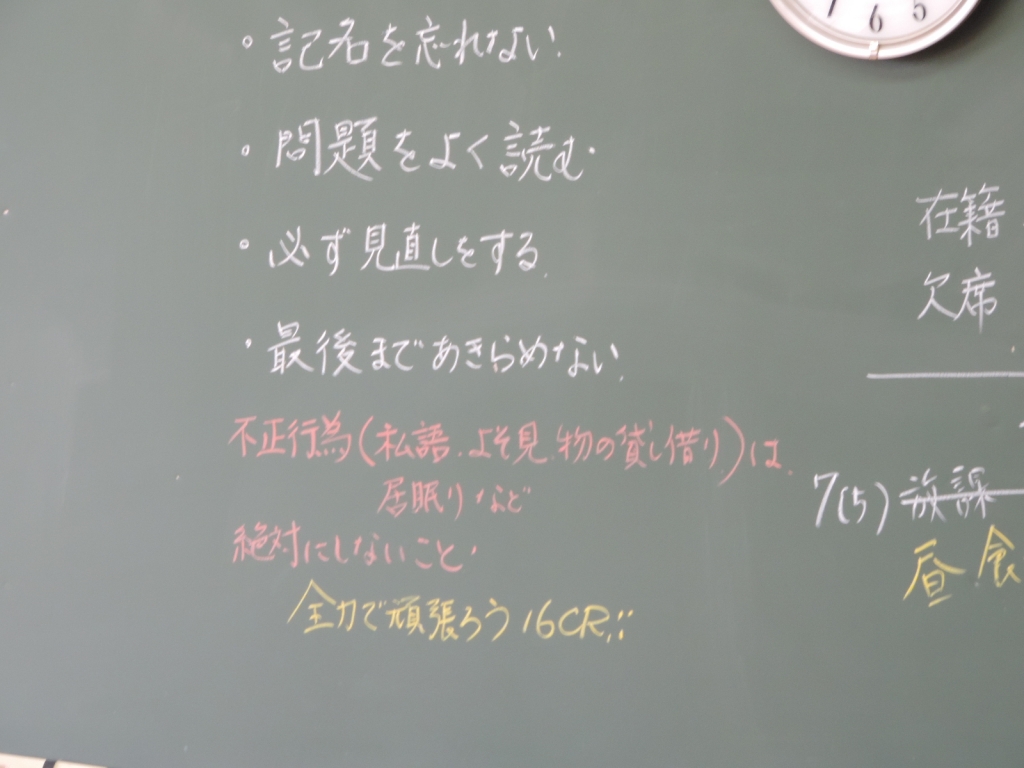 。記名を忘れない.
。問題をよく読む.
。必ず見直しをする.
・最後まであきらめない.
不正行為(私語.よそ見.物の貸し借り.)は.
居眠りなど
絶対にしないこと.
全力で頑張ろう16CR!!
在籍
欠席
7(5)放課
昼食
7 6 5